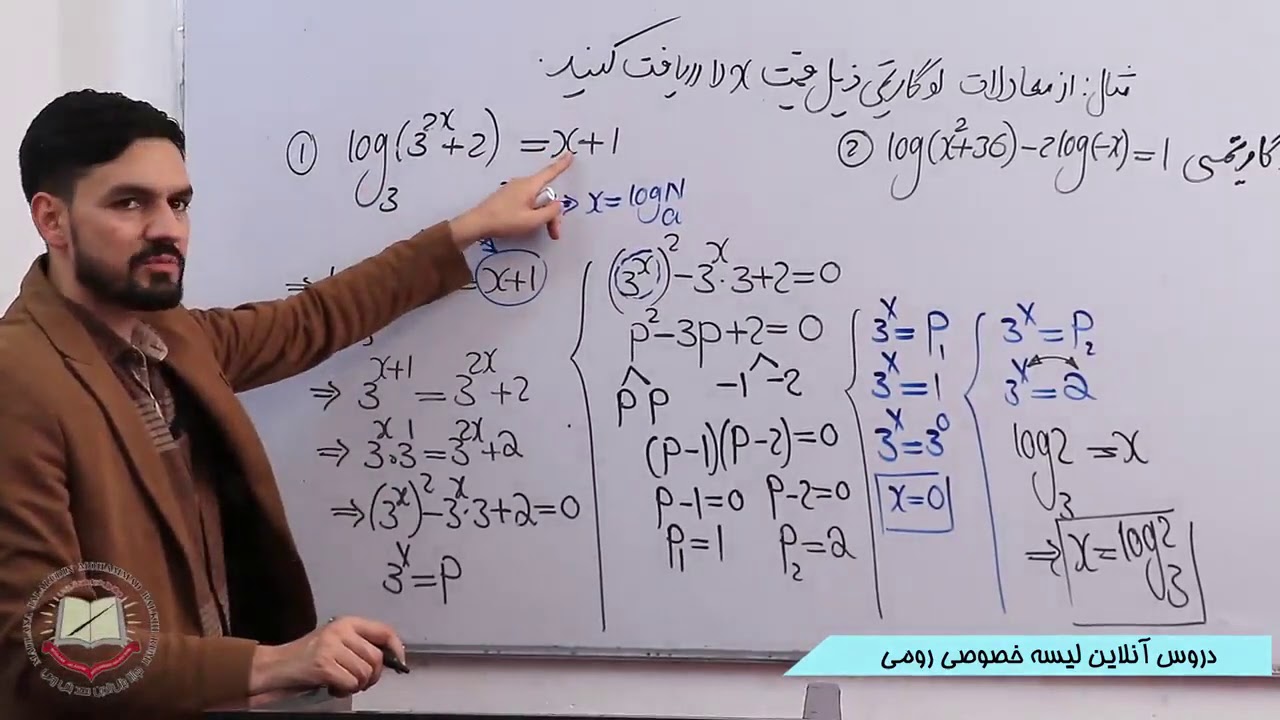 مثال: از معادلات لوگاریتمی ذیل قیمت x را دریافت کنید.
① log₃(3²ˣ+2) = x+1
② log(x²+36)-2log(-x)=1
⇒ x = logₐN
= x+1
⇒ 3ˣ⁺¹ = 3²ˣ+2
⇒ 3ˣ·3¹ = 3²ˣ+2
⇒ (3ˣ)²-3ˣ·3+2=0
3ˣ=P
(3ˣ)²-3ˣ·3+2=0
P²-3P+2=0
P P -1 -2
(P-1)(P-2)=0
P-1=0 P-2=0
P₁=1 P₂=2
3ˣ=P₁
3ˣ=1
3ˣ=3⁰
x=0
3ˣ=P₂
3ˣ=2
log₃2 = x
⇒ x=log₃2
دروس آنلاین لیسه خصوصی رومی